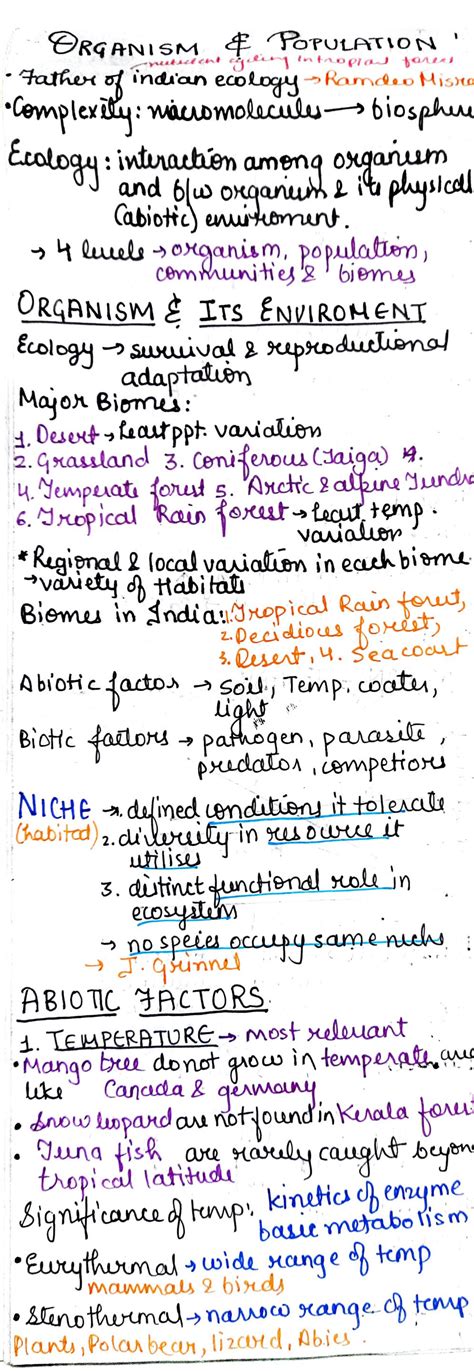 ORGANISM & POPULATION
nutrient cycling in tropical forest
• Father of indian ecology → Ramdeo Misra
• Complexity: macromolecules → biosphere
Ecology: interaction among organism
and b/w organium & its physicall
(abiotic) enviroment.
→ 4 levels → organism, population,
communities & biomes
ORGANISM & ITS ENVIROMENT
Ecology → survival & reproductional
adaptation
Major Biomes:
1. Desert → Least ppt. variation
2. Grassland 3. Coniferous (Taiga)
4. Temperate forest 5. Arctic & alpine Tundra
6. Tropical Rain forest → Least temp.
variation
* Regional & local variation in each biome
→ variety of Habitats
Biomes in India: 1. Tropical Rain forest,
2. Decidious forest,
3. Desert, 4. Sea coast
Abiotic factos → Soil, Temp. water,
light
Biotic factors → pathogen, parasite,
predator, competiors
NICHE → 1. defined conditions it tolerate
(habitad) 2. diversity in resource it
utilises
3. distinct functional role in
ecosystem
→ no species occupy same niche
→ J. Grinnel
ABIOTIC FACTORS
1. TEMPERATURE → most relevant
• Mango tree do not grow in temperate
like Canada & germany
• Snow leopard are not found in Kerala fores
• Tuna fish are rarely caught beyon
tropical latitude
Significance of temp: kinetics of enzyme
basic metabolism
• Eurythermal → wide range of temp
mammals & birds
• Stenothermal → narrow range of temp
Plants, Polar bear, lizard, Abies.